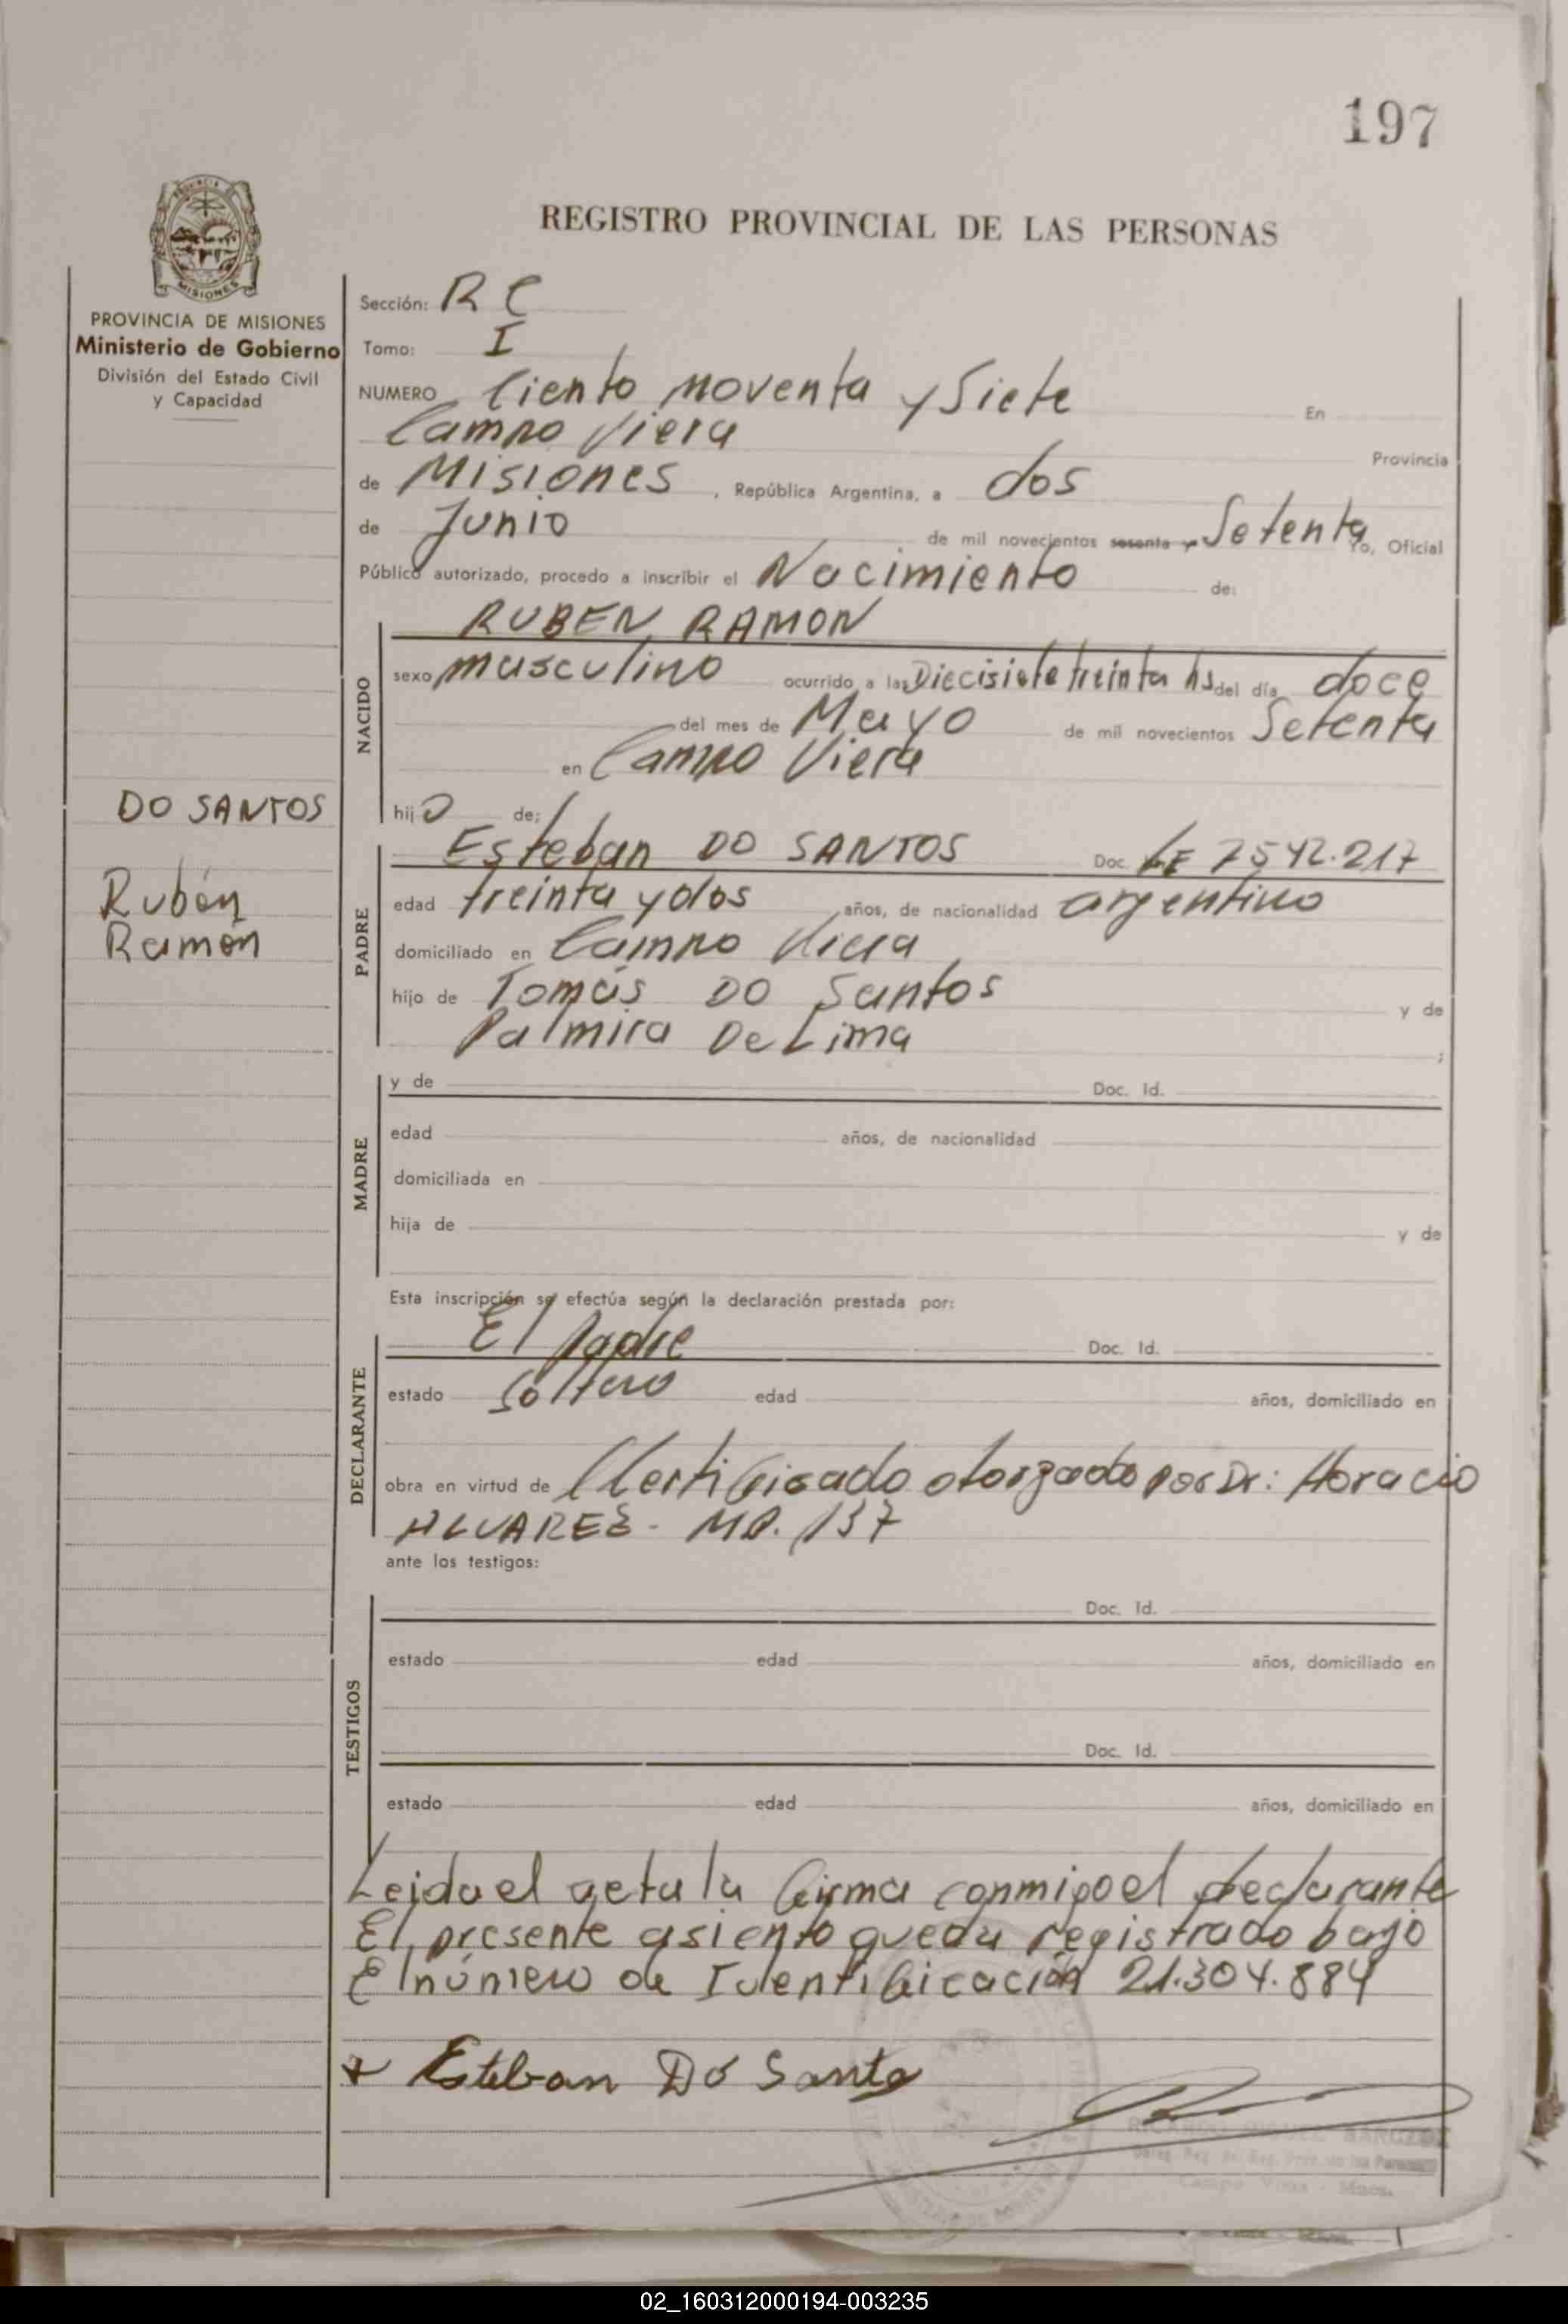 197
REGISTRO PROVINCIAL DE LAS PERSONAS
MISIONES
PROVINCIA DE MISIONES
Ministerio de Gobierno
División del Estado Civil
y Capacidad
Sección: R C
Tomo: I
NUMERO Ciento noventa y Siete En
Campo Viera Provincia
de Misiones, República Argentina, a dos
de Junio de mil novecientos sesenta y Setenta Yo, Oficial
Público autorizado, procedo a inscribir el Nacimiento de:
NACIDO
RUBEN RAMON
sexo masculino ocurrido a las Diecisiete treinta hs del día doce
del mes de Mayo de mil novecientos Setenta
en Campo Viera
hijo de:
DO SANTOS
Rubén
Ramón
PADRE
Esteban DO SANTOS Doc. LE 7542.217
edad treinta y dos años, de nacionalidad argentino
domiciliado en Campo Viera
hijo de Tomás DO Santos y de
Palmira De Lima ;
MADRE
y de Doc. Id.
edad años, de nacionalidad
domiciliada en
hija de y de
Esta inscripción se efectúa según la declaración prestada por:
DECLARANTE
El padre Doc. Id.
estado soltero edad años, domiciliado en
obra en virtud de Certificado otorgado por Dr: Horacio
ALVAREZ - MP. 137
ante los testigos:
TESTIGOS
Doc. Id.
estado edad años, domiciliado en
Doc. Id.
estado edad años, domiciliado en
Leida el acta la firma conmigo el declarante
El presente asiento queda registrado bajo
El número de Identificación 21.304.884
Esteban Do Santo
RICARDO MIGUEL
Campo Viera - Mnes.
02_160312000194-003235